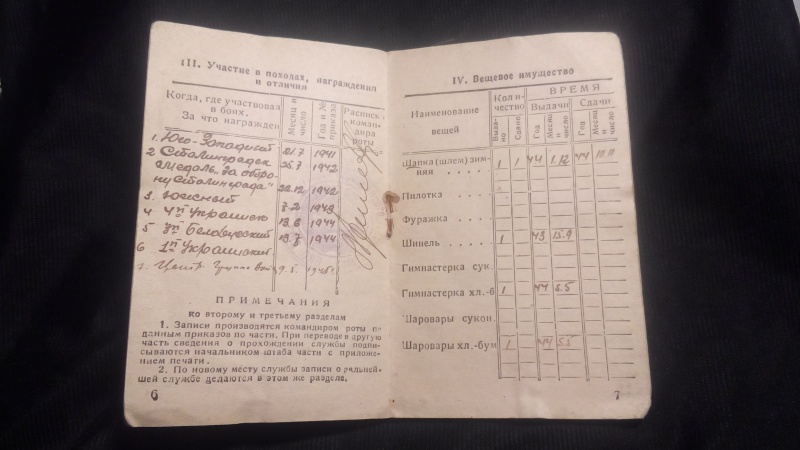 III. Участие в походах, награждения
и отличия
Когда, где участвовал
в боях.
За что награжден
Месяц и
число
Год и №
приказа
Распис
коман-
дира
роты
1. Юго-Западный 21.7 1941
2 Сталинградск 25.7 1942
медаль "За оборо
ну Сталинграда" 22.12 1942
3. Южный
4 4й Украинский
5 Белорусский 1944
6 1й Украинский
7. Центр. Группа Вой 9.5.
ПРИМЕЧАНИЯ
ко второму и третьему разделам
1. Записи производятся командиром роты по
данным приказов по части. При переводе в другую
часть сведения о прохождении службы подпи-
сываются начальником штаба части с приложе-
нием печати.
2. По новому месту службы записи о дальней-
шей службе делаются в этом же разделе.
6
IV. Вещевое имущество
Наименование
вещей
Количество
Выда-
но
Сдано
ВРЕМЯ
Выдачи
Сдачи
Год
Месяц
и
число
Год
Месяц
и
число
Шапка (шлем) зим-
няя . . . . 1 1 44 1.12 44
Пилотка . . . .
Фуражка . . . .
Шинель . . . . 1 43
Гимнастерка сук.
Гимнастерка хл.-б 1 44 5.5
Шаровары сукон.
Шаровары хл.-бум 1 44 5.5
7